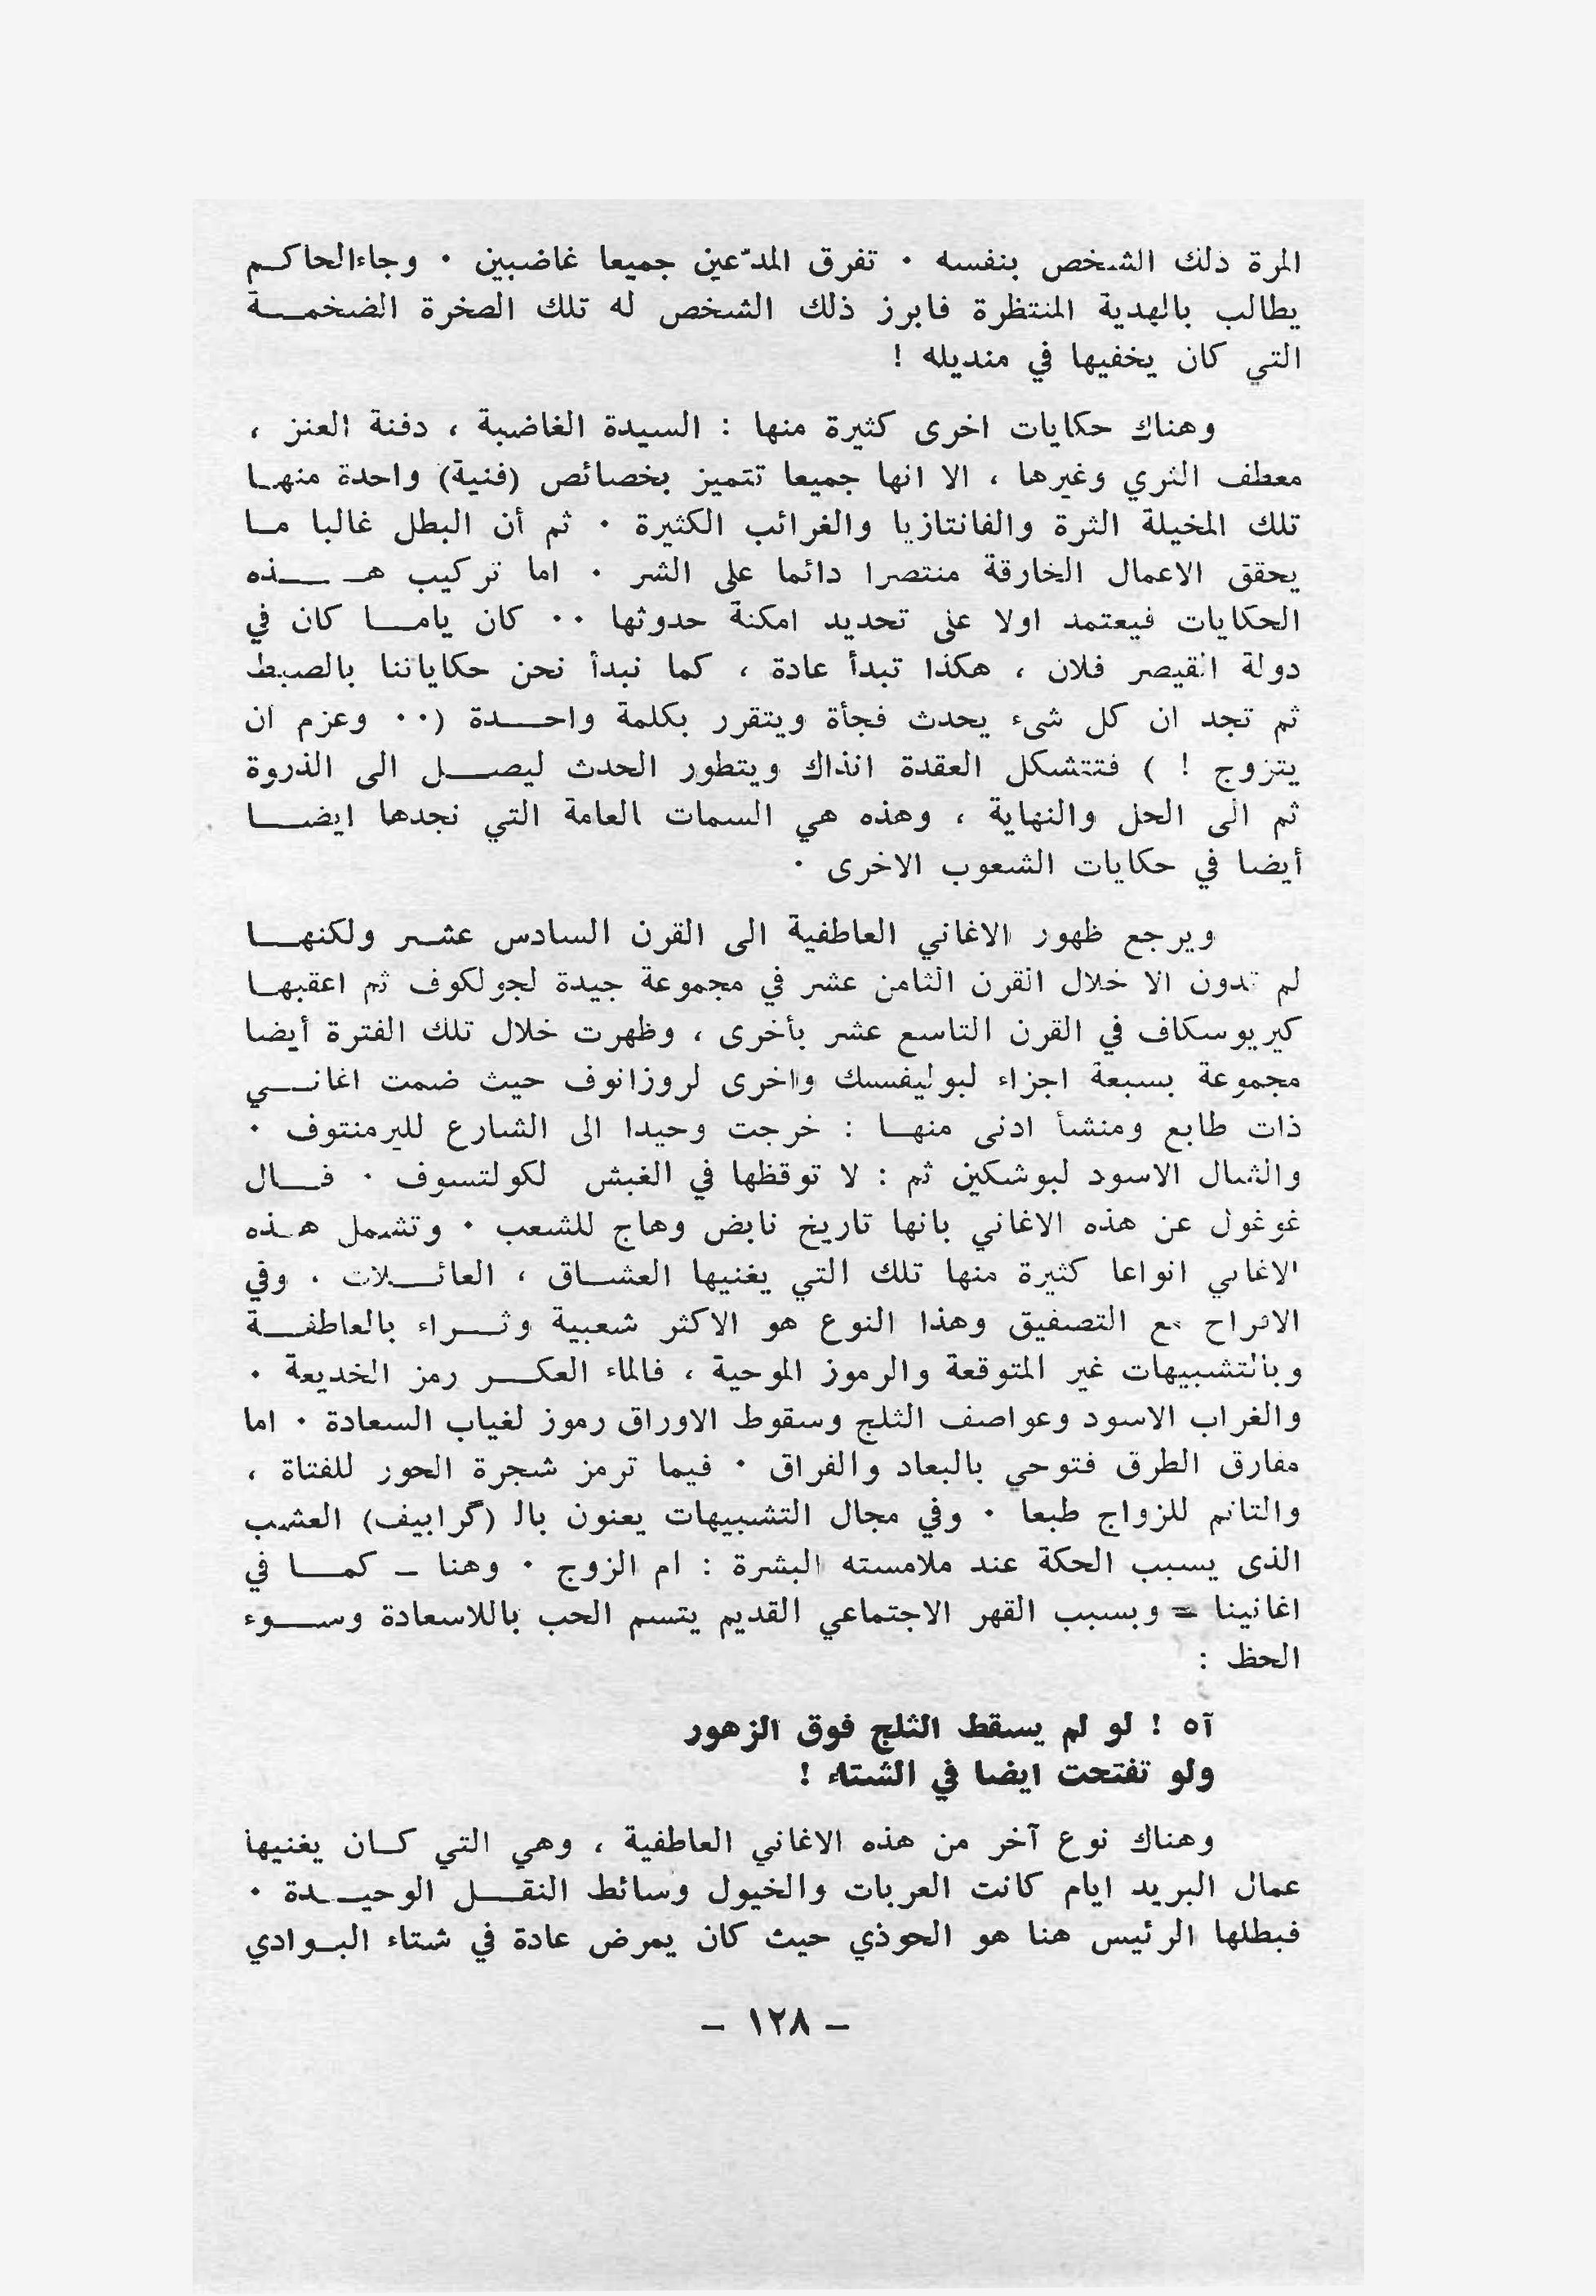 المرة ذلك الشخص بنفسه ٠ تفرق المدّعين جميعا غاضبين ٠ وجاءالحاكم
يطالب بالهدية المنتظرة فابرز ذلك الشخص له تلك الصخرة الضخمة
التي كان يخفيها في منديله !
وهناك حكايات اخرى كثيرة منها : السيدة الغاضبة ، دفنة العنز ،
معطف الثري وغيرها ، الا انها جميعا تتميز بخصائص (فنية) واحدة منها
تلك المخيلة الثرة والفانتازيا والغرائب الكثيرة ٠ ثم أن البطل غالبا ما
يحقق الاعمال الخارقة منتصرا دائما على الشر ٠ اما تركيب هذه
الحكايات فيعتمد اولا على تحديد امكنة حدوثها ٠٠ كان ياما كان في
دولة القيصر فلان ، هكذا تبدأ عادة ، كما نبدأ نحن حكاياتنا بالضبط
ثم تجد ان كل شىء يحدث فجأة ويتقرر بكلمة واحدة (٠٠ وعزم ان
يتزوج ! ) فتتشكل العقدة انذاك ويتطور الحدث ليصل الى الذروة
ثم الى الحل والنهاية ، وهذه هي السمات العامة التي نجدها ايضا
أيضا في حكايات الشعوب الاخرى ٠
ويرجع ظهور الاغاني العاطفية الى القرن السادس عشر ولكنها
لم تدون الا خلال القرن الثامن عشر في مجموعة جيدة لجولكوف ثم اعقبها
كيريوسكاف في القرن التاسع عشر بأخرى ، وظهرت خلال تلك الفترة أيضا
مجموعة بسبعة اجزاء لبوليفسسك واخرى لروزانوف حيث ضمت اغاني
ذات طابع ومنشأ ادنى منها : خرجت وحيدا الى الشارع لليرمنتوف ٠
والشال الاسود لبوشكين ثم : لا توقظها في الغبش لكولتسوف ٠ قال
غوغول عن هذه الاغاني بانها تاريخ نابض وهاج للشعب ٠ وتشمل هذه
الاغاني انواعا كثيرة منها تلك التي يغنيها العشاق ، العائلات ، وفي
الافراح مع التصفيق وهذا النوع هو الاكثر شعبية وثراء بالعاطفة
وبالتشبيهات غير المتوقعة والرموز الموحية ، فالماء العكر رمز الخديعة ٠
والغراب الاسود وعواصف الثلج وسقوط الاوراق رموز لغياب السعادة ٠ اما
مفارق الطرق فتوحي بالبعاد والفراق ٠ فيما ترمز شجرة الحور للفتاة ،
والتانم للزواج طبعا ٠ وفي مجال التشبيهات يعنون بالـ (گرابيف) العشب
الذى يسبب الحكة عند ملامسته البشرة : ام الزوج ٠ وهنا ـ كما في
اغانينا = وبسبب القهر الاجتماعي القديم يتسم الحب باللاسعادة وسوء
الحظ :
آه ! لو لم يسقط الثلج فوق الزهور
ولو تفتحت ايضا في الشتاء !
وهناك نوع آخر من هذه الاغاني العاطفية ، وهي التي كان يغنيها
عمال البريد ايام كانت العربات والخيول وسائط النقل الوحيدة ٠
فبطلها الرئيس هنا هو الحوذي حيث كان يمرض عادة في شتاء البوادي
ـ ١٢٨ ـ